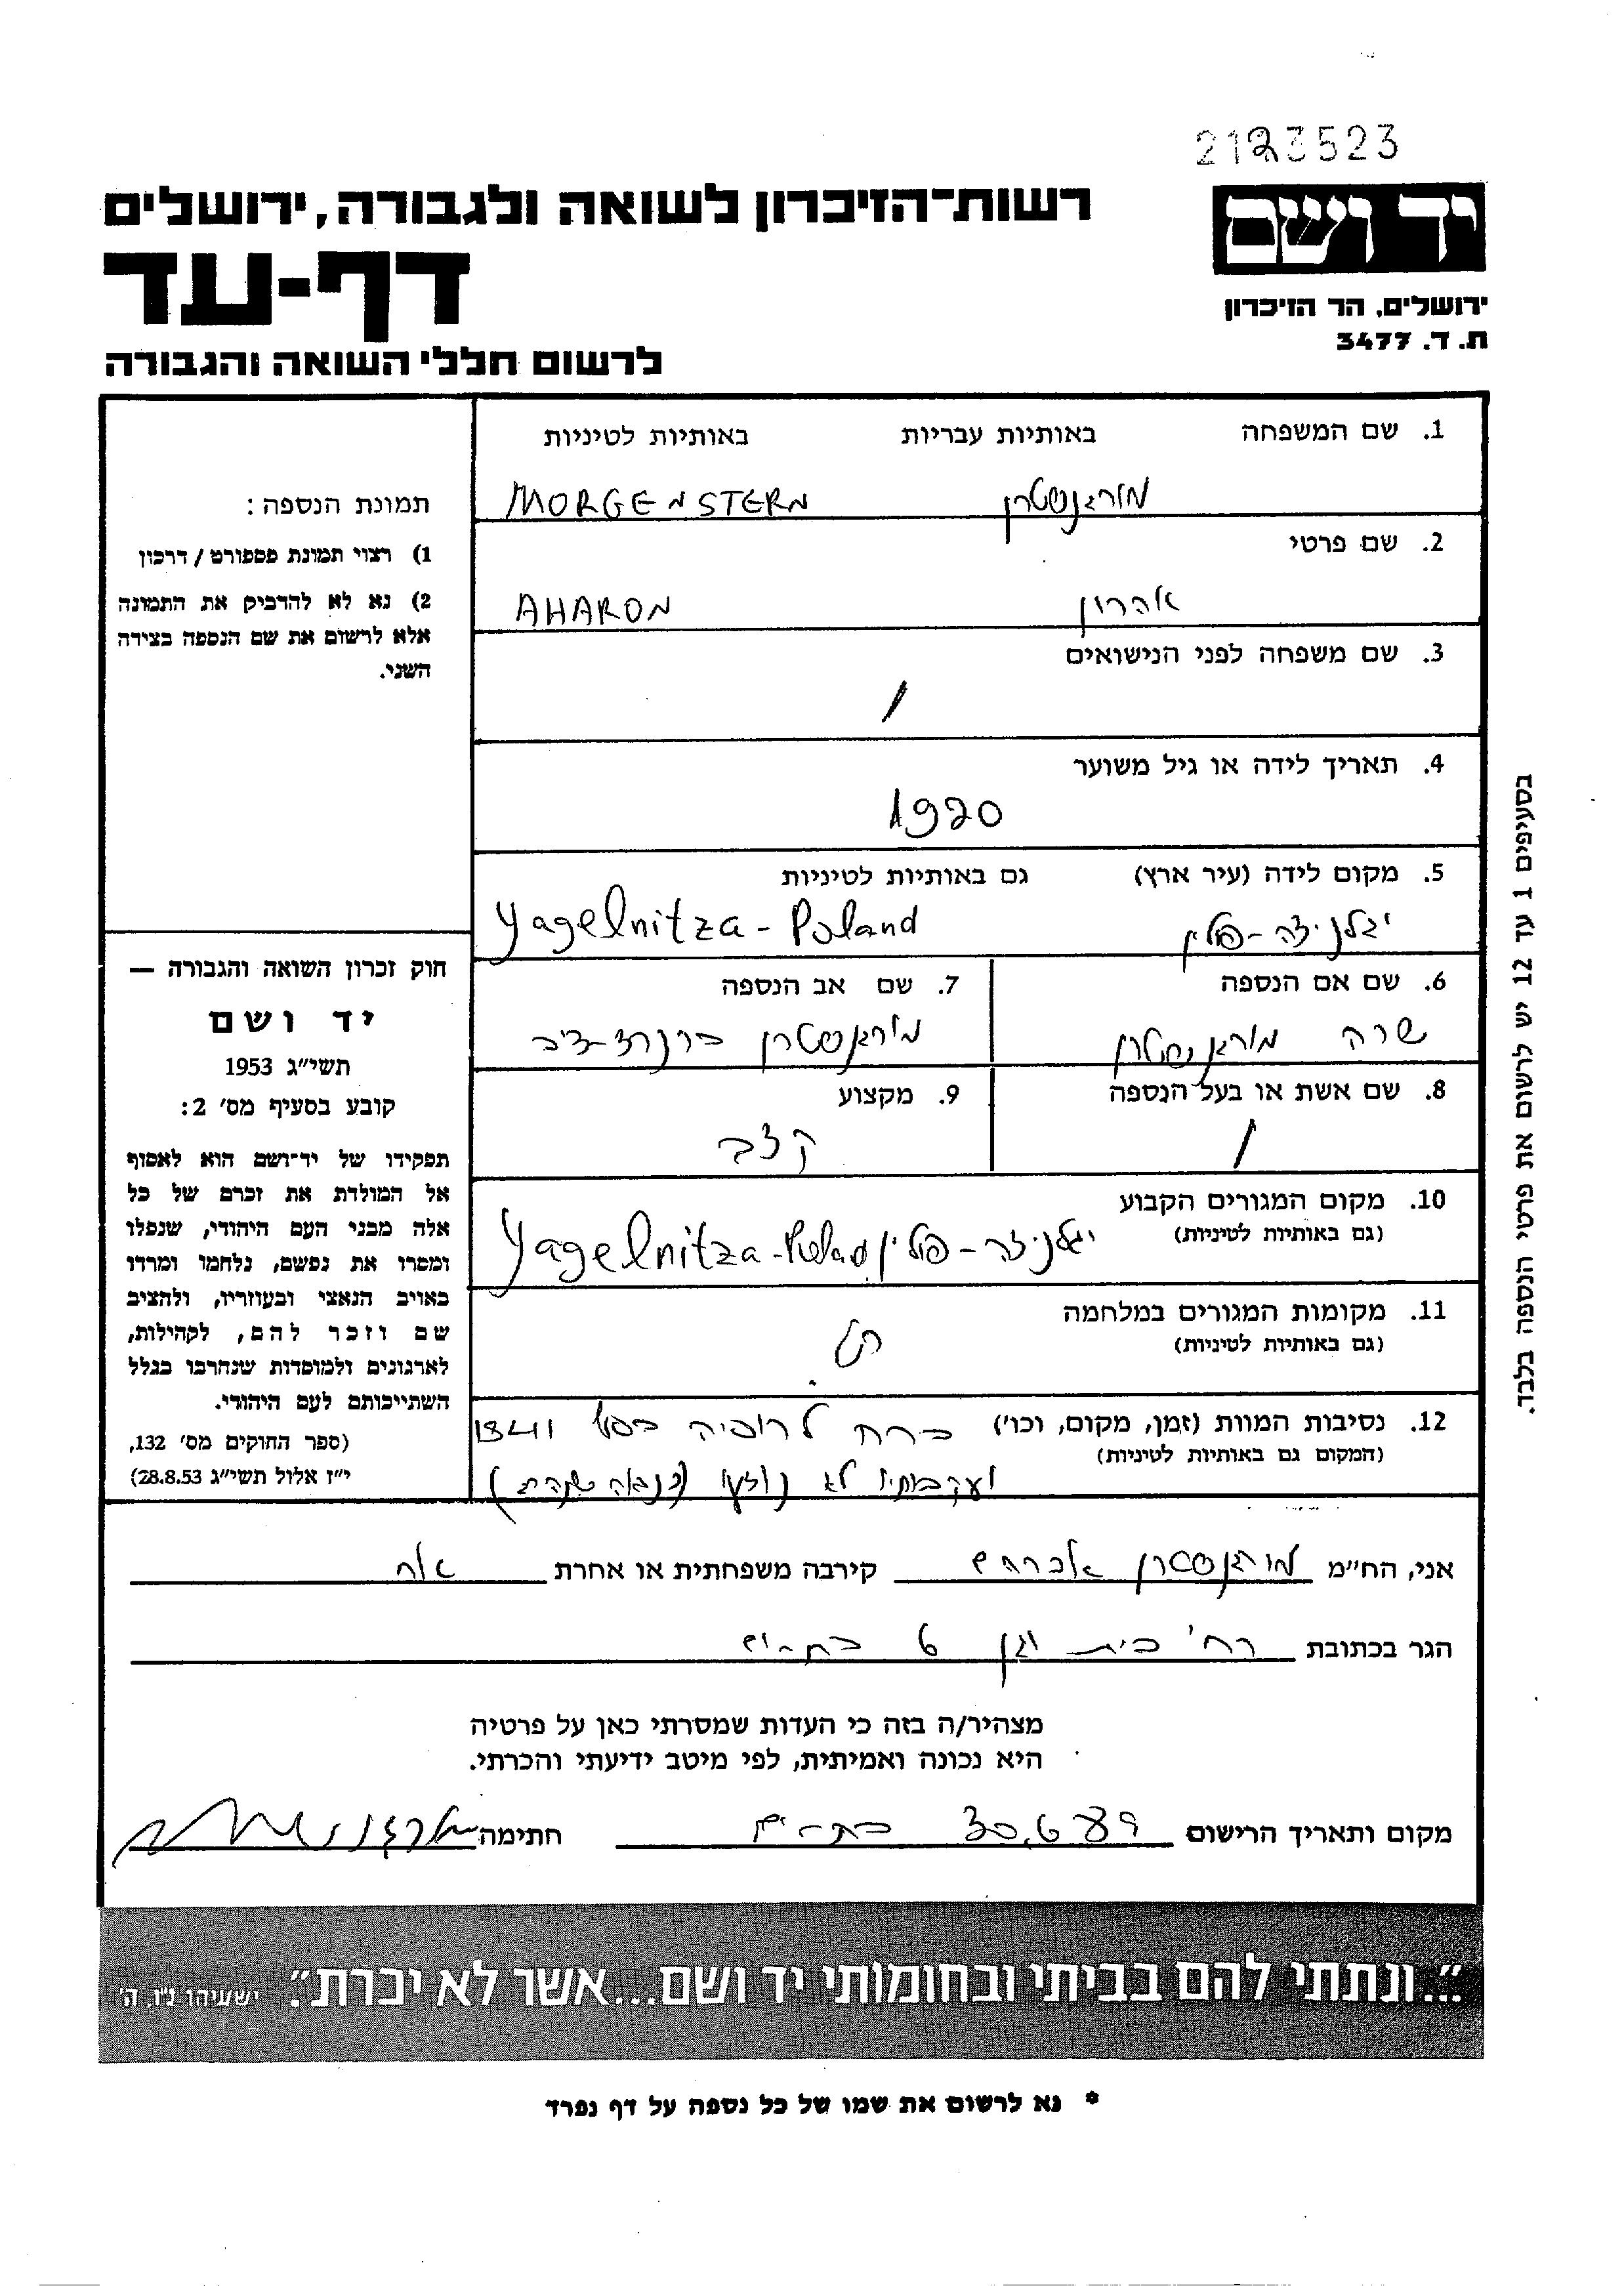 2123523
יד ושם
ירושלים, הר הזיכרון
ת. ד. 3477
רשות־הזיכרון לשואה ולגבורה, ירושלים
דף-עד
לרשום חללי השואה והגבורה
1. שם המשפחה באותיות עבריות באותיות לטיניות
מורגנשטרן MORGENSTERN
2. שם פרטי
אהרון AHARON
3. שם משפחה לפני הנישואים
/
4. תאריך לידה או גיל משוער
1920
5. מקום לידה (עיר ארץ) גם באותיות לטיניות
יגלניצה - פולין Yagelnitza - Poland
6. שם אם הנספה 7. שם אב הנספה
שרה מורגנשטרן מורגנשטרן
8. שם אשת או בעל הנספה 9. מקצוע
/ קצב
10. מקום המגורים הקבוע
(גם באותיות לטיניות)
יגלניצה - פולין Yagelnitza - Poland
11. מקומות המגורים במלחמה
(גם באותיות לטיניות)
12. נסיבות המוות (זמן, מקום, וכו') ברח לרוסיה 1941
(המקום גם באותיות לטיניות)
ועקבותיו לא נודעו (כנראה שנהרג)
תמונת הנספה:
1) רצוי תמונת פספורט / דרכון
2) נא לא להדביק את התמונה
אלא לרשום את שם הנספה בצידה
השני.
חוק זכרון השואה והגבורה —
יד ושם
תשי״ג 1953
קובע בסעיף מס׳ 2:
תפקידו של יד־ושם הוא לאסוף
אל המולדת את זכרם של כל
אלה מבני העם היהודי, שנפלו
ומסרו את נפשם, נלחמו ומרדו
באויב הנאצי ובעוזריו, ולהציב
שם וזכר להם, לקהילות,
לארגונים ולמוסדות שנחרבו בגלל
השתייכותם לעם היהודי.
(ספר החוקים מס׳ 132,
י״ז אלול תשי״ג 28.8.53)
בסעיפים 1 עד 12 יש לרשום את פרטי הנספה בלבד.
אני, הח״מ מורגנשטרן אברהם קירבה משפחתית או אחרת אח
הגר בכתובת רח' בית וגן 6 בת-ים
מצהיר/ה בזה כי העדות שמסרתי כאן על פרטיה
היא נכונה ואמיתית, לפי מיטב ידיעתי והכרתי.
מקום ותאריך הרישום 30.6.89 בת-ים חתימה
״...ונתתי להם בביתי ובחומותי יד ושם...אשר לא יכרת״. ישעיהו נ״ו, ה׳
* נא לרשום את שמו של כל נספה על דף נפרד